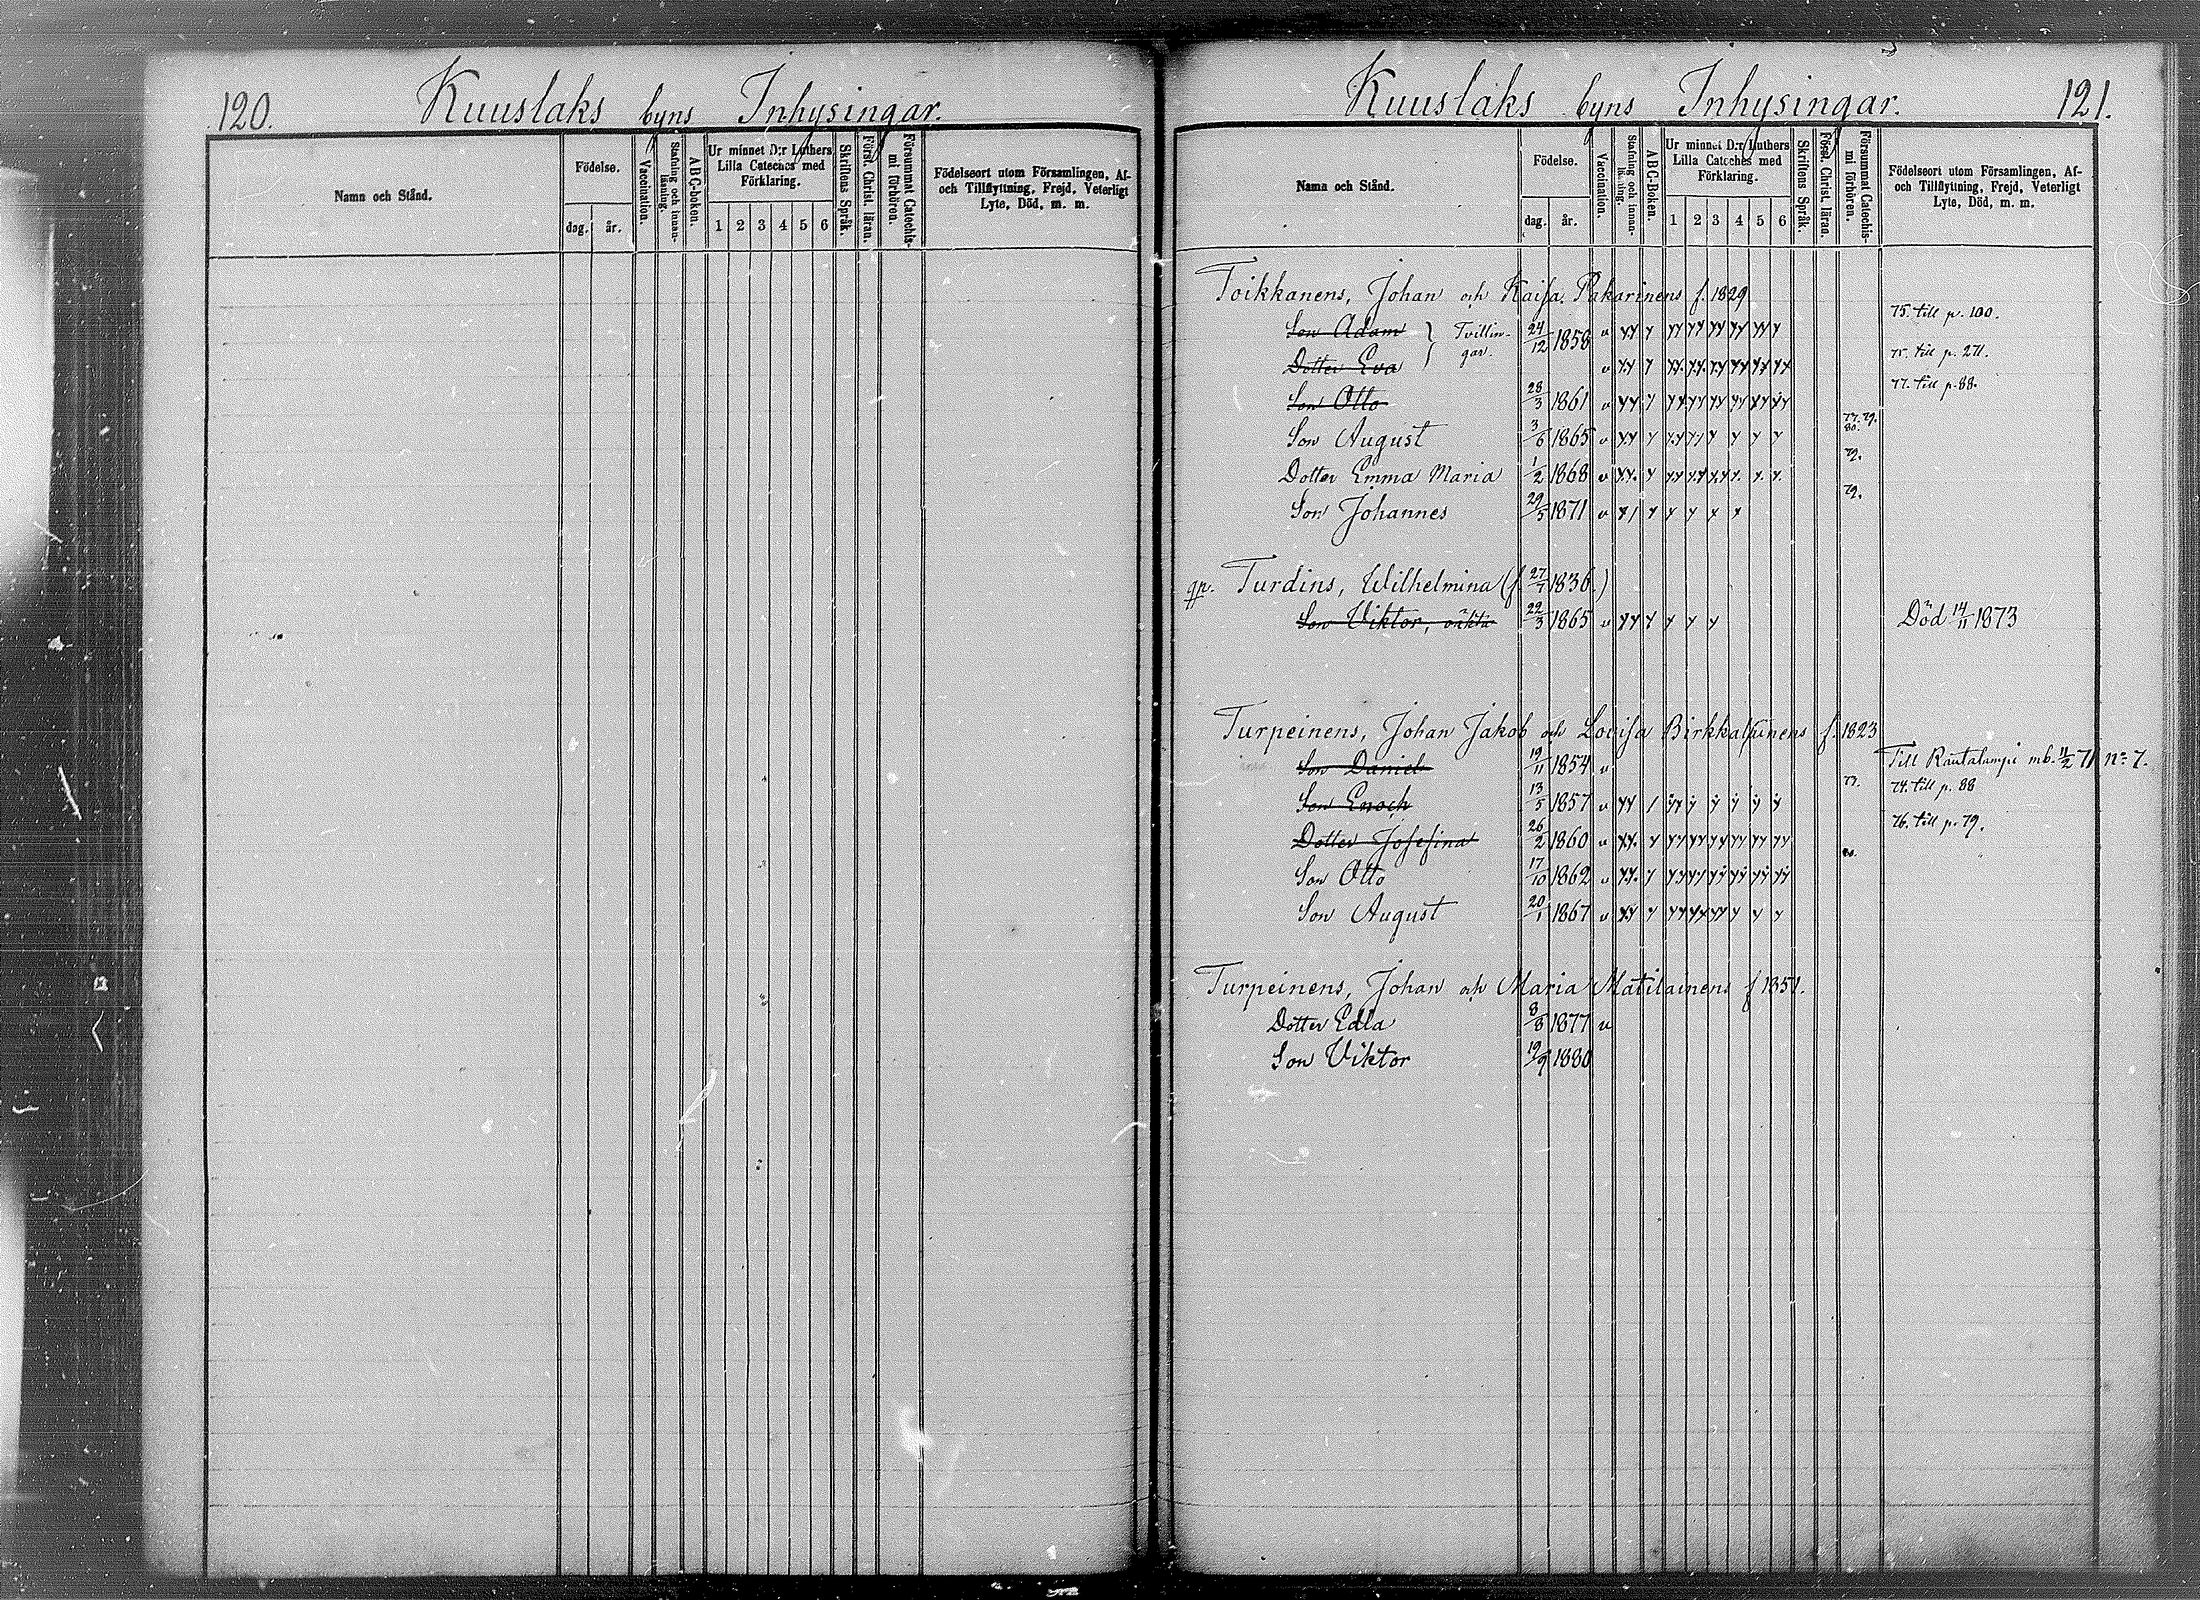 120.
Kuuslaks byns Inhysingar.
Namn och Stånd.
Födelse.
dag. år.
Vaccination.
Stafning och innan-läsning.
ABC-boken.
Ur minnet D:r Luthers Lilla Cateches med Förklaring.
1 2 3 4 5 6
Skriftens Språk.
Först. Christ. läran.
Försummat Catechis-mi förhören.
Födelseort utom Församlingen, Af- och Tillflyttning, Frejd, Veterligt Lyte, Död, m. m.
Kuuslaks byns Inhysingar.
121.
Namn och Stånd.
Födelse.
dag. år.
Vaccination.
Stafning och innan-läsning.
ABC-Boken.
Ur minnet D:r Luthers Lilla Cateches med Förklaring.
1 2 3 4 5 6
Skriftens Språk.
Först. Christ. läran.
Försummat Catechis-mi förhören.
Födelseort utom Församlingen, Af- och Tillflyttning, Frejd, Veterligt Lyte, Död, m. m.
Toikkanens, Johan och Kaisa Pakarinens f. 1829
Son Adam } Tvillingar. 24/12 1858 75. till p. 100.
Dotter Eva 75. till p. 271.
Son Otto 28/3 1861 77. till p. 88.
Son August 3/6 1865 77. 79. 80.
Dotter Emma Maria 1/2 1868 79.
Son Johannes 29/5 1871 79.
qp. Turdins, Wilhelmina (f. 27/7 1836.)
Son Viktor, oäkta 22/3 1865 Död 14/11 1873
Turpeinens, Johan Jakob och Lovisa f. 1823
Son Daniel 19/11 1854 Till Rautalampi mb. 11/2 71 no 7.
Son Enoch 13/5 1857 74. till p. 88
Dotter Josefina 26/2 1860 76. till p. 79.
Son Otto 17/10 1862
Son August 20/1 1867
Turpeinens, Johan och Maria Matilainens f 1851.
Dotter Edla 8/8 1877
Son Viktor 19/9 1880